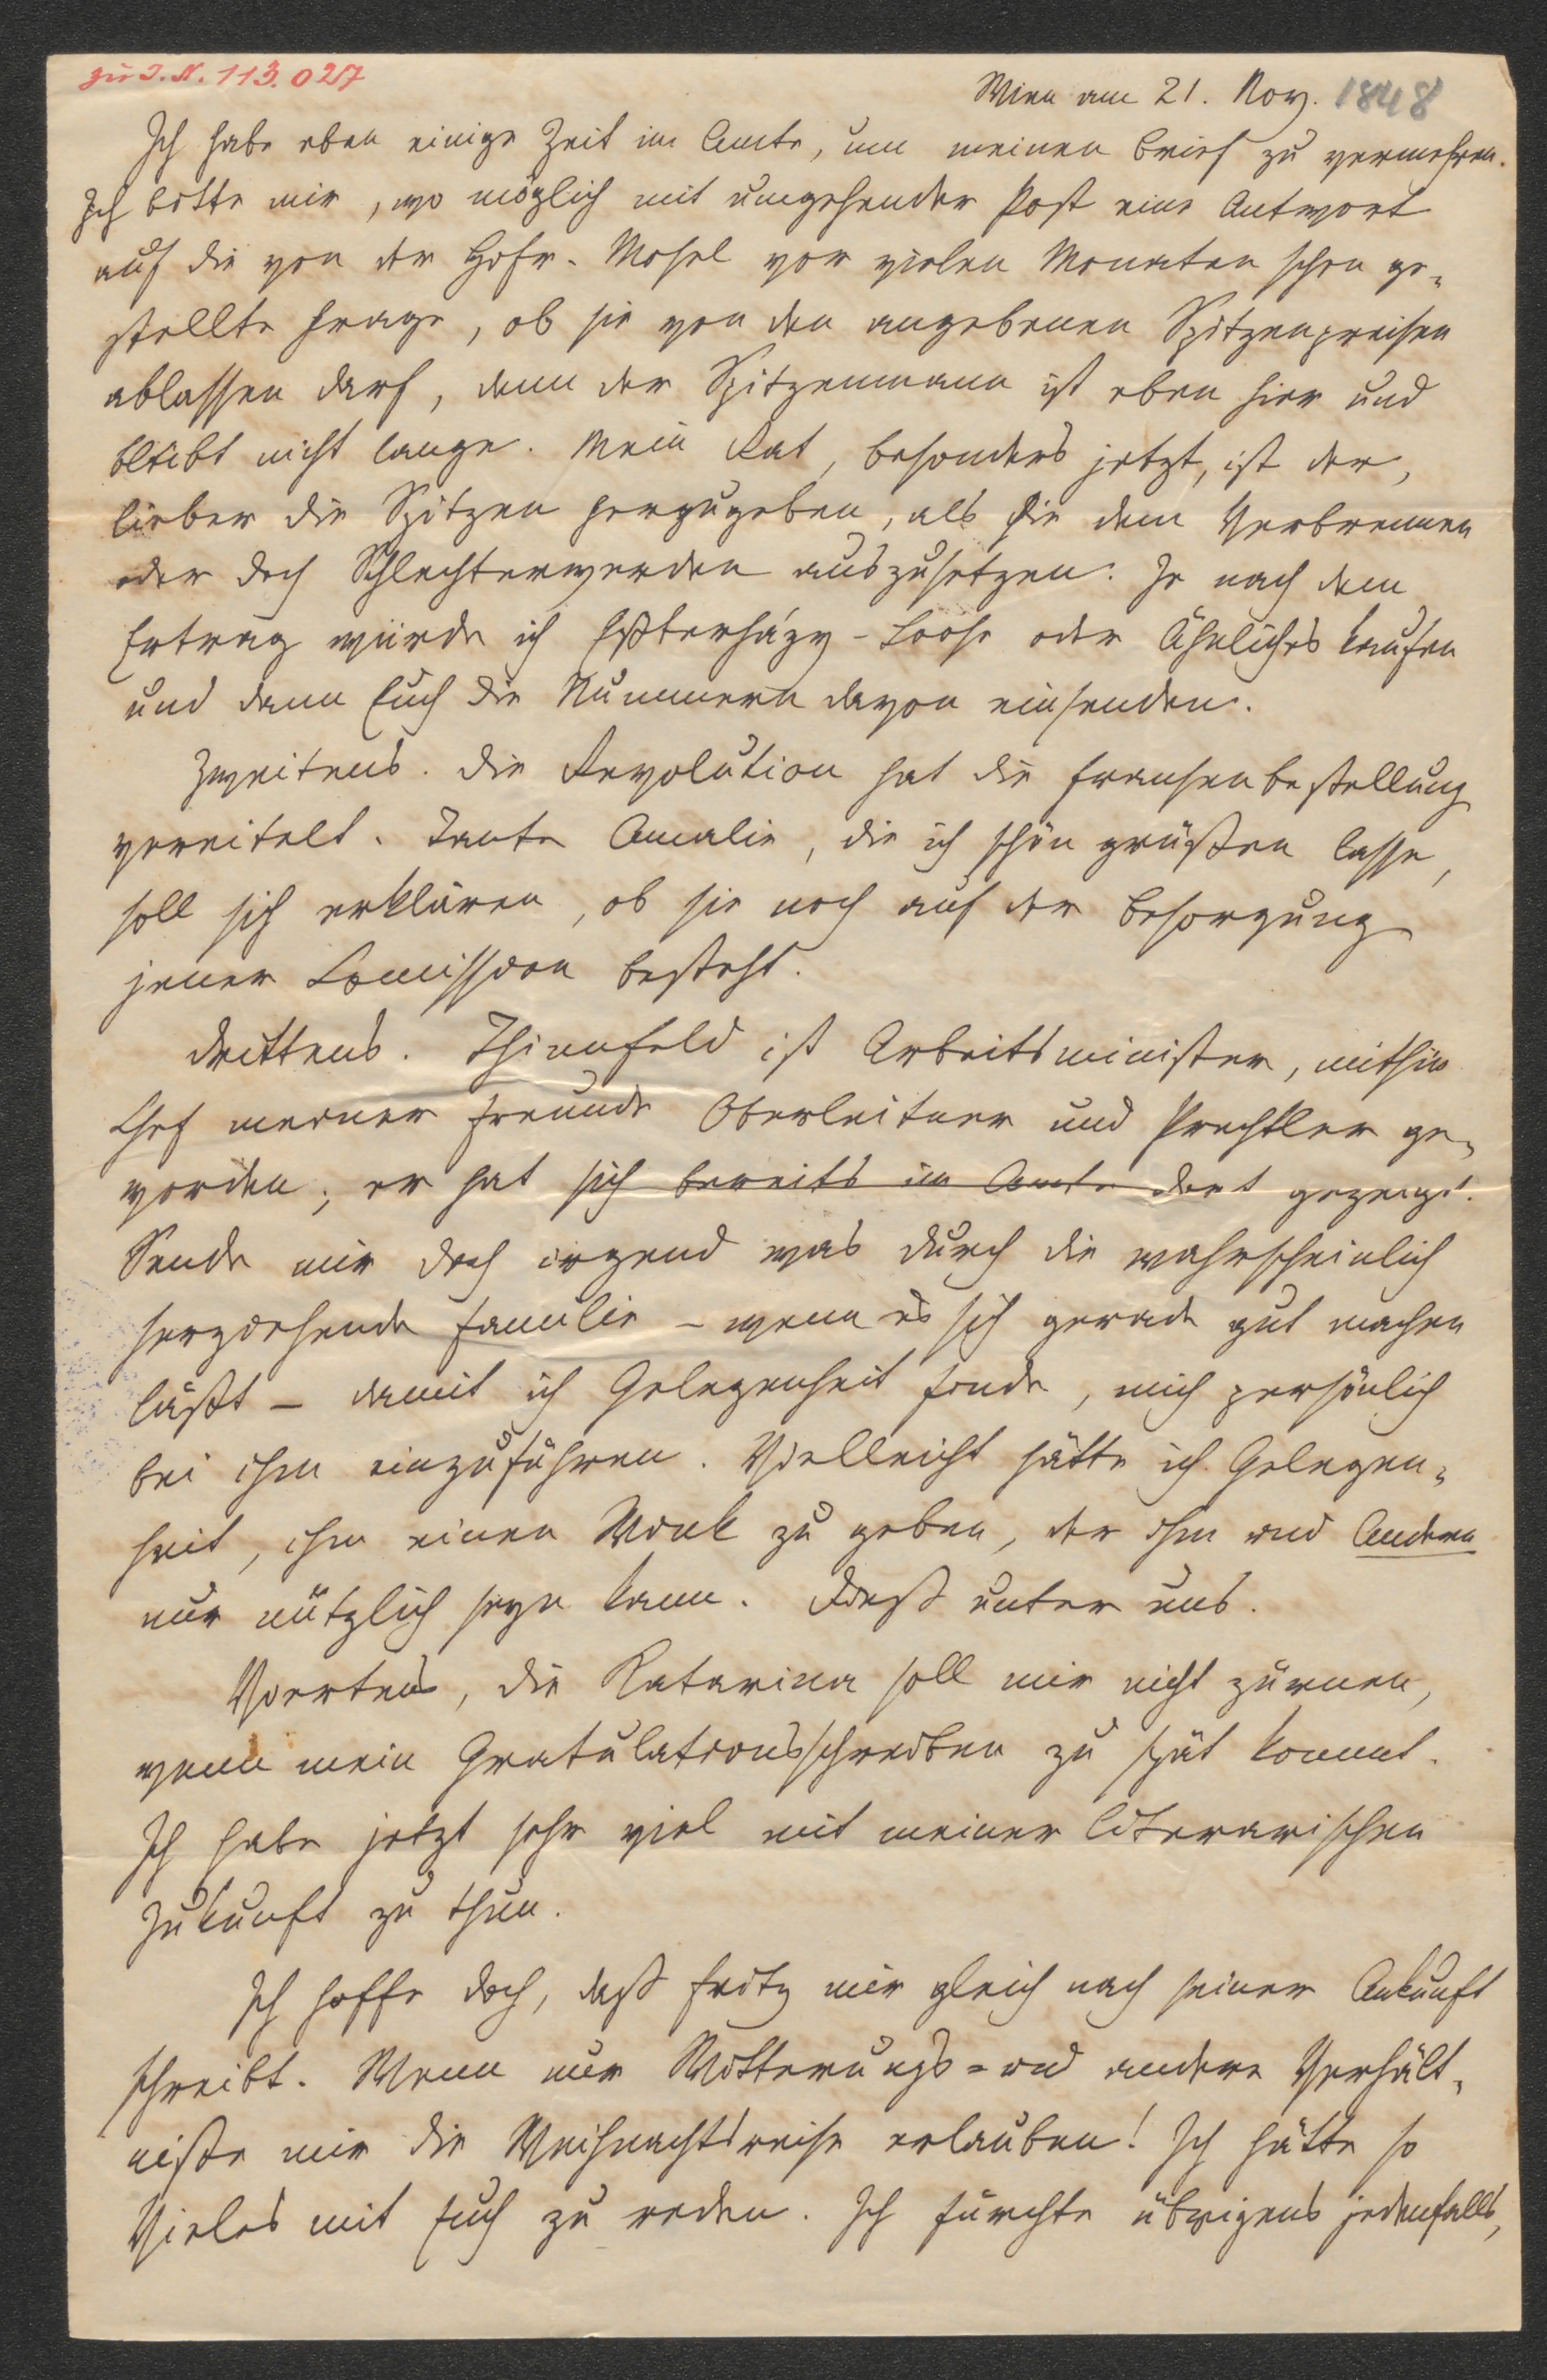 zu I. N. 113.027
Wien am 21. Nov. 1848
Ich habe eben einige Zeit im Amte, um meinen Brief zu vermehren.
Ich bitte mir, wo möglich mit umgehender Post eine Antwort
auf die von der Hofr. Mosel vor vielen Monaten schon ge¬
stellte Frage, ob sie von den angebenen Spitzenpreisen
ablassen darf, denn der Spitzenmann ist eben hier und
bleibt nicht lange. Mein Rat, besonders jetzt, ist der,
lieber die Spitzen herzugeben, als sie dem Verbrennen
oder doch Schlechterwerden auszusetzen. Je nach dem
Ertrag würde ich Eßterházy-Loose oder Ähnliches kaufen
und dann Euch die Nummern davon einsenden.
Zweitens. Die Revolution hat die Fransenbestellung
vereitelt. Tante Amalie, die ich schön grüßen lasse,
soll sich erklären, ob sie noch auf der Besorgung
jener Comission besteht.
Drittens. Thinnfeld ist Arbeitsminister, mithin
Chef meiner Freunde Oberleitner und Prechtler ge¬
worden; er hat sich bereits im Amte dort gezeigt.
Sende mir doch irgend was durch die wahrscheinlich
herziehende Familie – wenn es sich gerade gut machen
läßt – damit ich Gelegenheit finde, mich persönlich
bei ihm einzuführen. Vielleicht hätte ich Gelegen¬
heit, ihm einen Wink zu geben, der ihm und Andern
nur nützlich seyn kann. Dieß unter uns.
Viertens, die Katarina soll mir nicht zürnen,
wenn mein Gratulationsschreiben zu spät kommt.
Ich habe jetzt sehr viel mit meiner literarischen
Zukunft zu thun.
Ich hoffe doch, daß Fritz mir gleich nach seiner Ankunft
schreibt. Wenn nur Witterungs- und andere Verhält¬
niße mir die Weihnachtsreise erlauben! Ich hätte so
Vieles mit Euch zu reden. Ich fürchte übrigens jedenfalls,